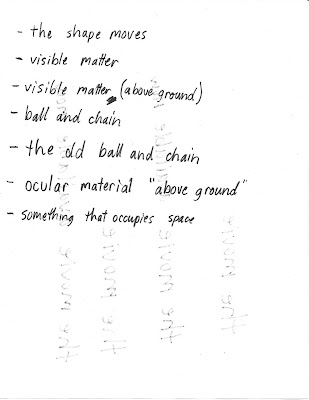 - the shape moves
- visible matter
- visible matter (above ground)
- ball and chain
- the old ball and chain
- ocular material "above ground"
- something that occupies space
the movie
the movie
the movie
the movie